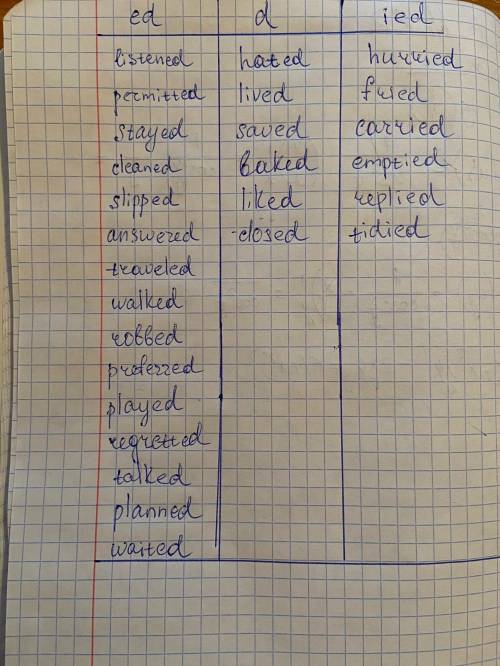 ed d ied
listened hated hurried
permitted lived fried
stayed saved carried
cleaned baked emptied
slipped liked replied
answered closed tidied
traveled
walked
robbed
preferred
played
regretted
talked
planned
waited